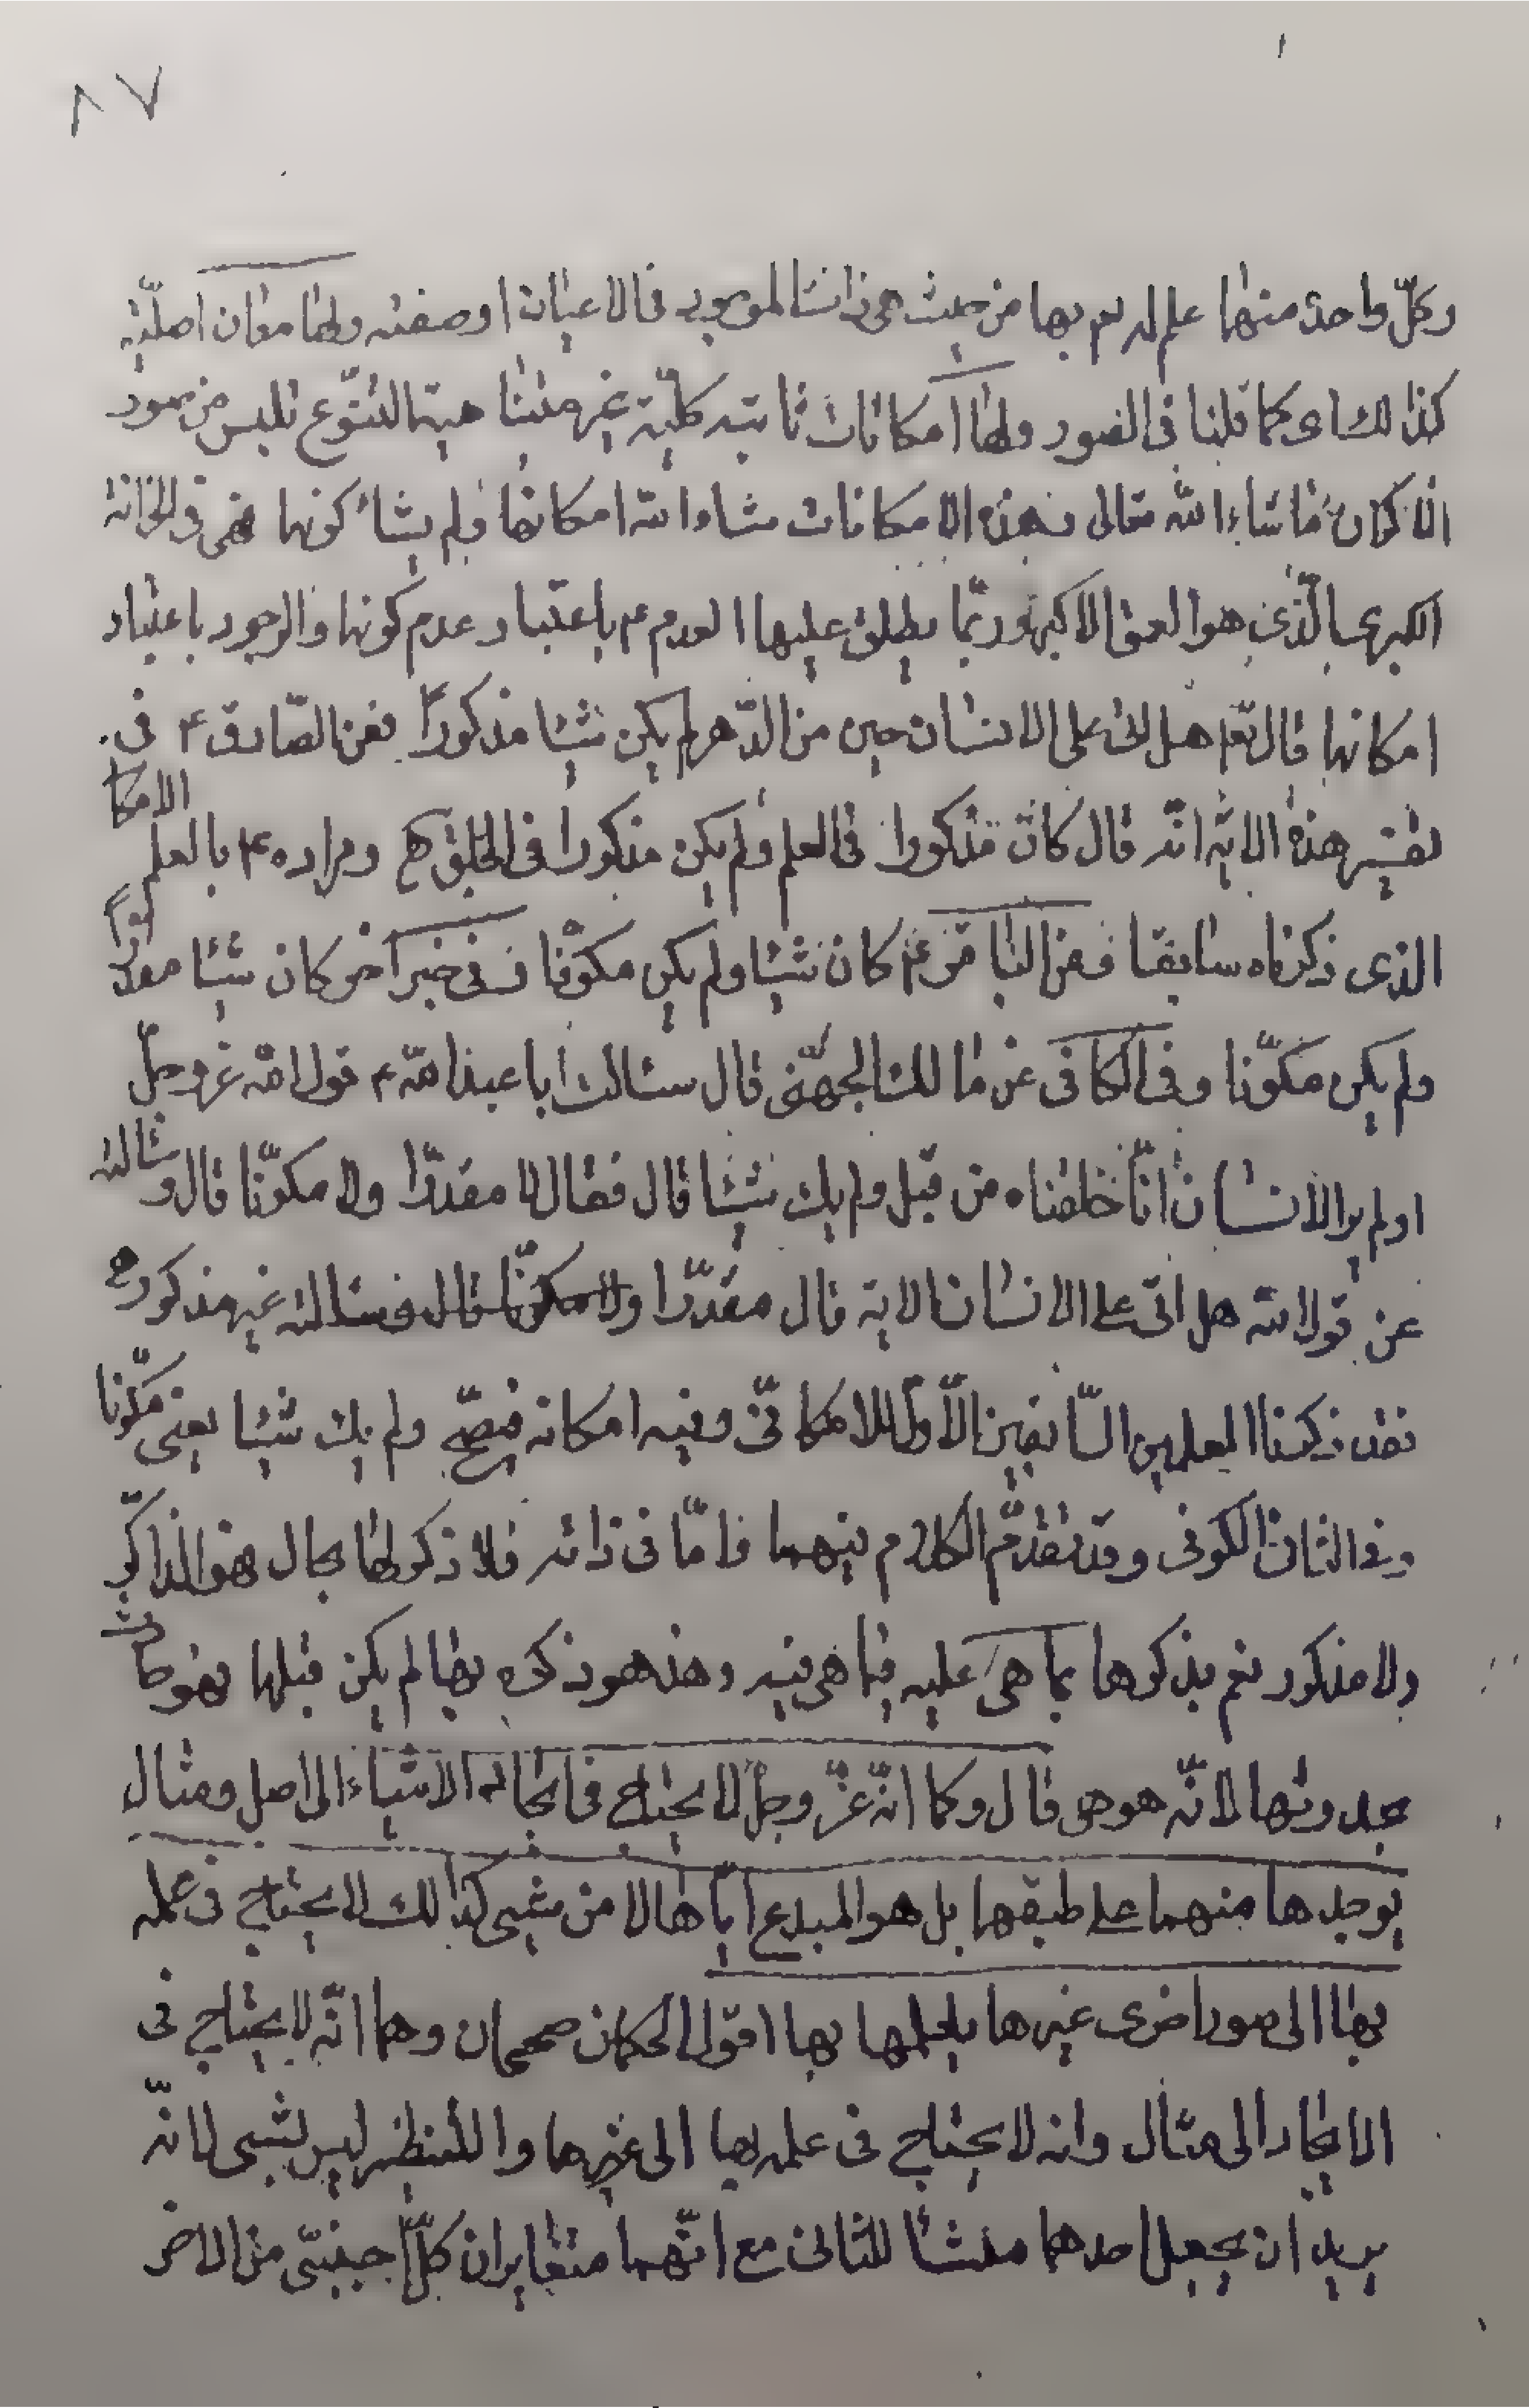 ٨٧
وكلّ واحدة منها علم له بها من حيث هي ذات الموجود في الاعيان او صفته ولها معان اصليّة
كذلك اي كما قلنا في الصور ولها امكانات ثابتة كليّة غير متناهية التنوّع تلبس من صور
الاكوان ما شاء الله تعالى فهذه الامكانات شاء الله امكانها ولم يشأ كونها فهي في الخزانة
الكبرى الّذي هو العمق الاكبر وربّما يطلق عليها العدم باعتبار عدم كونها والوجود باعتبار
امكانها قال تع هل اتى على الانسان حين من الدّهر لم يكن شيئا مذكورًا فعن الصّادق ع في
تفسير هذه الاية انّه قال كان مذكورا في العلم ولم يكن مذكورا في الخلق ومراده ع بالعلم الامكا
الذي ذكرناه سابقا وعن الباقر ع كان شيئا ولم يكن مكوّنا وفي خبر آخر كان شيئا مقدّرًا
ولم يكن مكوّنا وفي الكافي عن مالك الجهني قال سئالت ابا عبد الله ع قول الله عزوجلّ
اولم ير الانسان انّا خلقناه من قبل ولم يك شيئا قال فقال لا مقدّرا ولا مكوّنا قال وسئالته
عن قول الله هل اتى على الانسان الاية قال مقدّرا ولا مكوّنا قال وسئالته غير مذكور
فقد ذكرنا العلمين السّابقين الاول الامكانيّ وفيه امكانه فيصحّ ولم يك شيئا يعني مكوّنا
والثاني الكوني وقد تقدّم الكلام فيهما فامّا في ذاته فلا ذكر لها بحال فهو الذاكر
ولا مذكور نعم يذكرها بما هي عليه فيما هي فيه وهذه هو ذكره بها لم يكن قبلها فهو حادث
بحدوثها لانّه هو هي قال وكما انّه عزّ وجلّ لا يحتاج في ايجاد الاشياء الى اصل ومثال
يوجدها منهما على طبقها بل هو المبدع ايّاها لا من شيء كذلك لا يحتاج في علمه
بها الى صور اخرى غيرها يعلمها بها اقول الحكمان صحيحان وهما انّه لا يحتاج في
الايجاد الى مثال وانه لا يحتاج في علمه بها الى غيرها والتنظير ليس بشيء لانّه
يريد ان يجعل احدهما منشأ للثاني مع انّهما متغايران كلّ اجنبيّ من الاخر